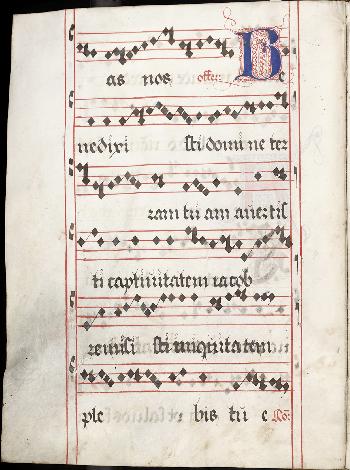 as nos offer. B e
nedixi sti domi ne ter
ram tu am auertis
ti captiuitatem iacob
remisi sti iniquitatem
ple bis tu e Co.